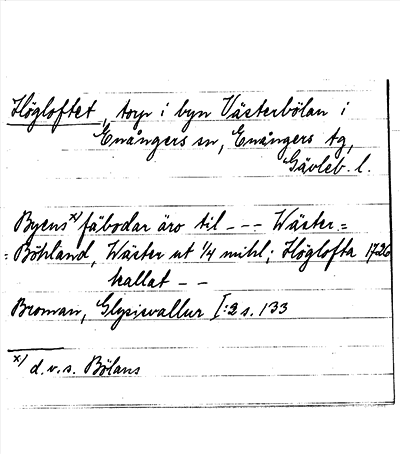 Högloftet, torp i byn Västerbölan i
Enångers sn, Enångers tg,
Gävleb. l.
Byens x/ fäbodar äro til - - - Wäster=
=Böhland, Wäster ut 1/4 mihl; Höglofta 1726
kallat - -
Broman, Glysisvallur I:2 s. 133
x/ d.v.s. Bölans